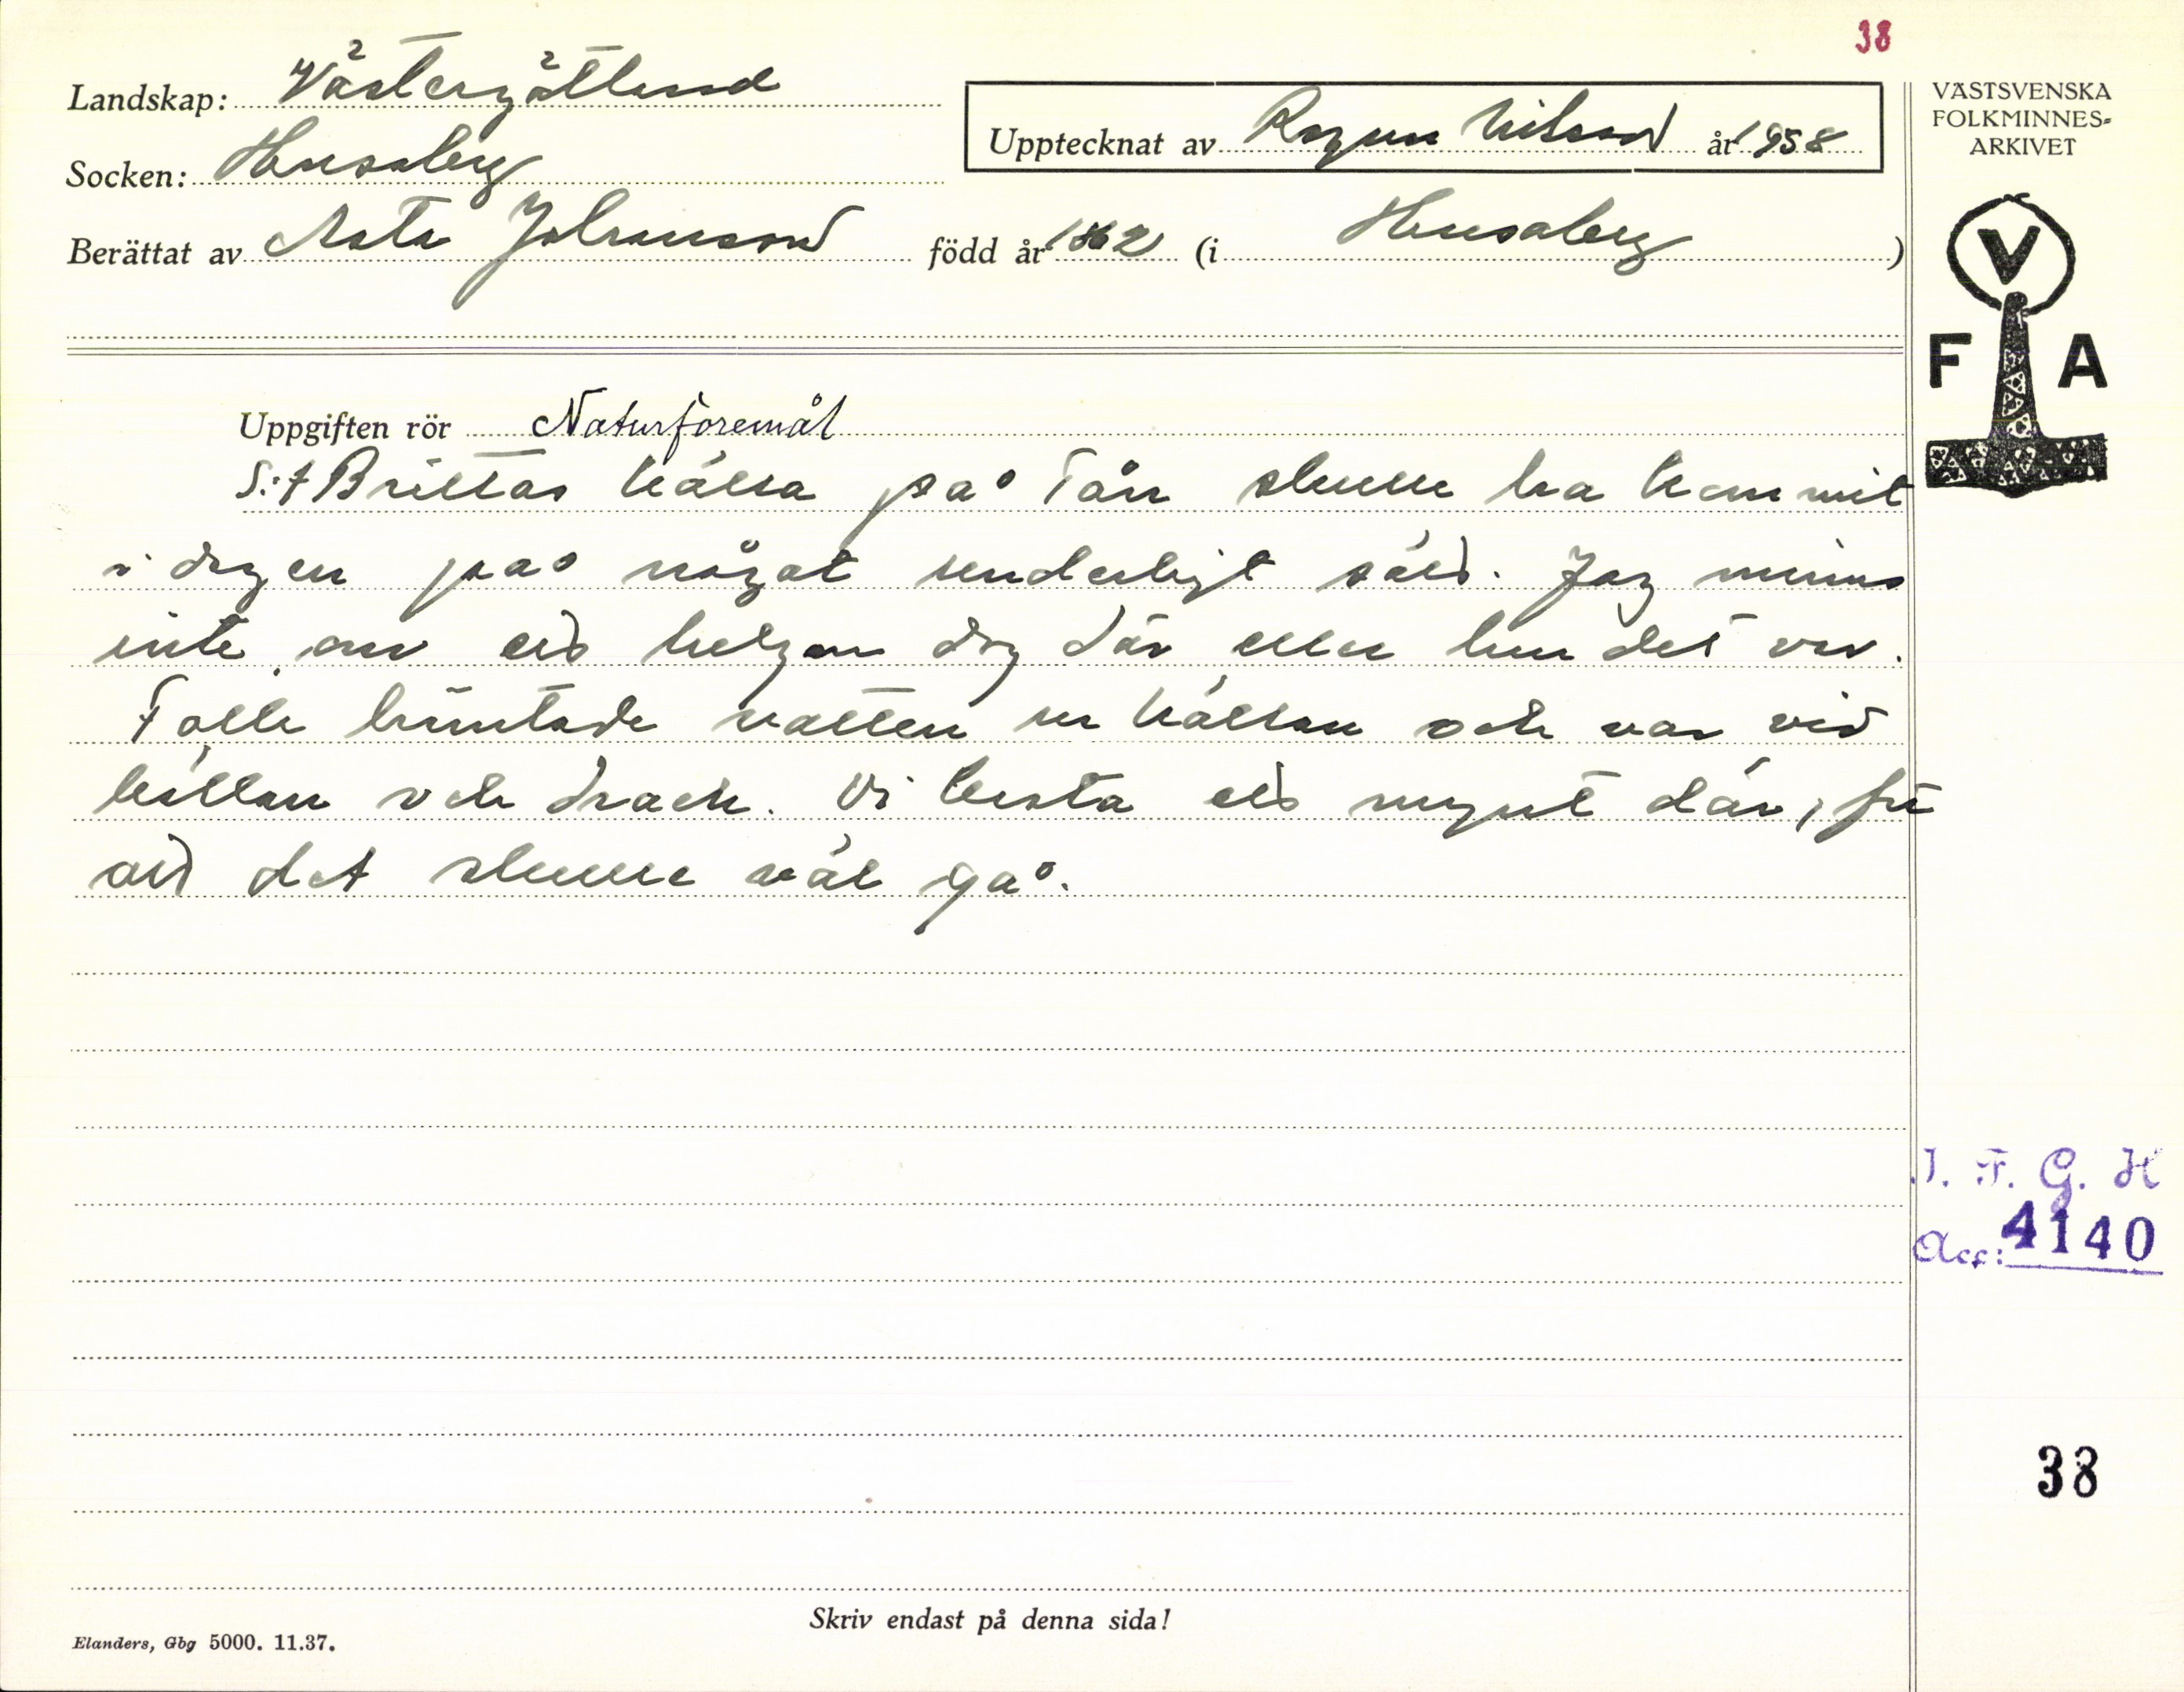 38
Landskap: Västergötland
Socken: Husaby
Upptecknat av Ragnar Nilsson år 1958
Berättat av Asta Johansson född år 1862 (i Husaby)
VÄSTSVENSKA
FOLKMINNES-
ARKIVET
V
F A
Uppgiften rör Naturföremål
S:t Brittas källa på skulle ha kommit
i dagen på något underligt sätt. Jag minns
inte om ett helgon dog där eller hur det var.
Folk hämtade vatten ur källan och var vid
källan och drack. Vi kasta ett mynt där, för
att det skulle väl gå.
I. F. G. H
Acc: 4140
38
Skriv endast på denna sida!
Elanders, Gbg 5000. 11.37.